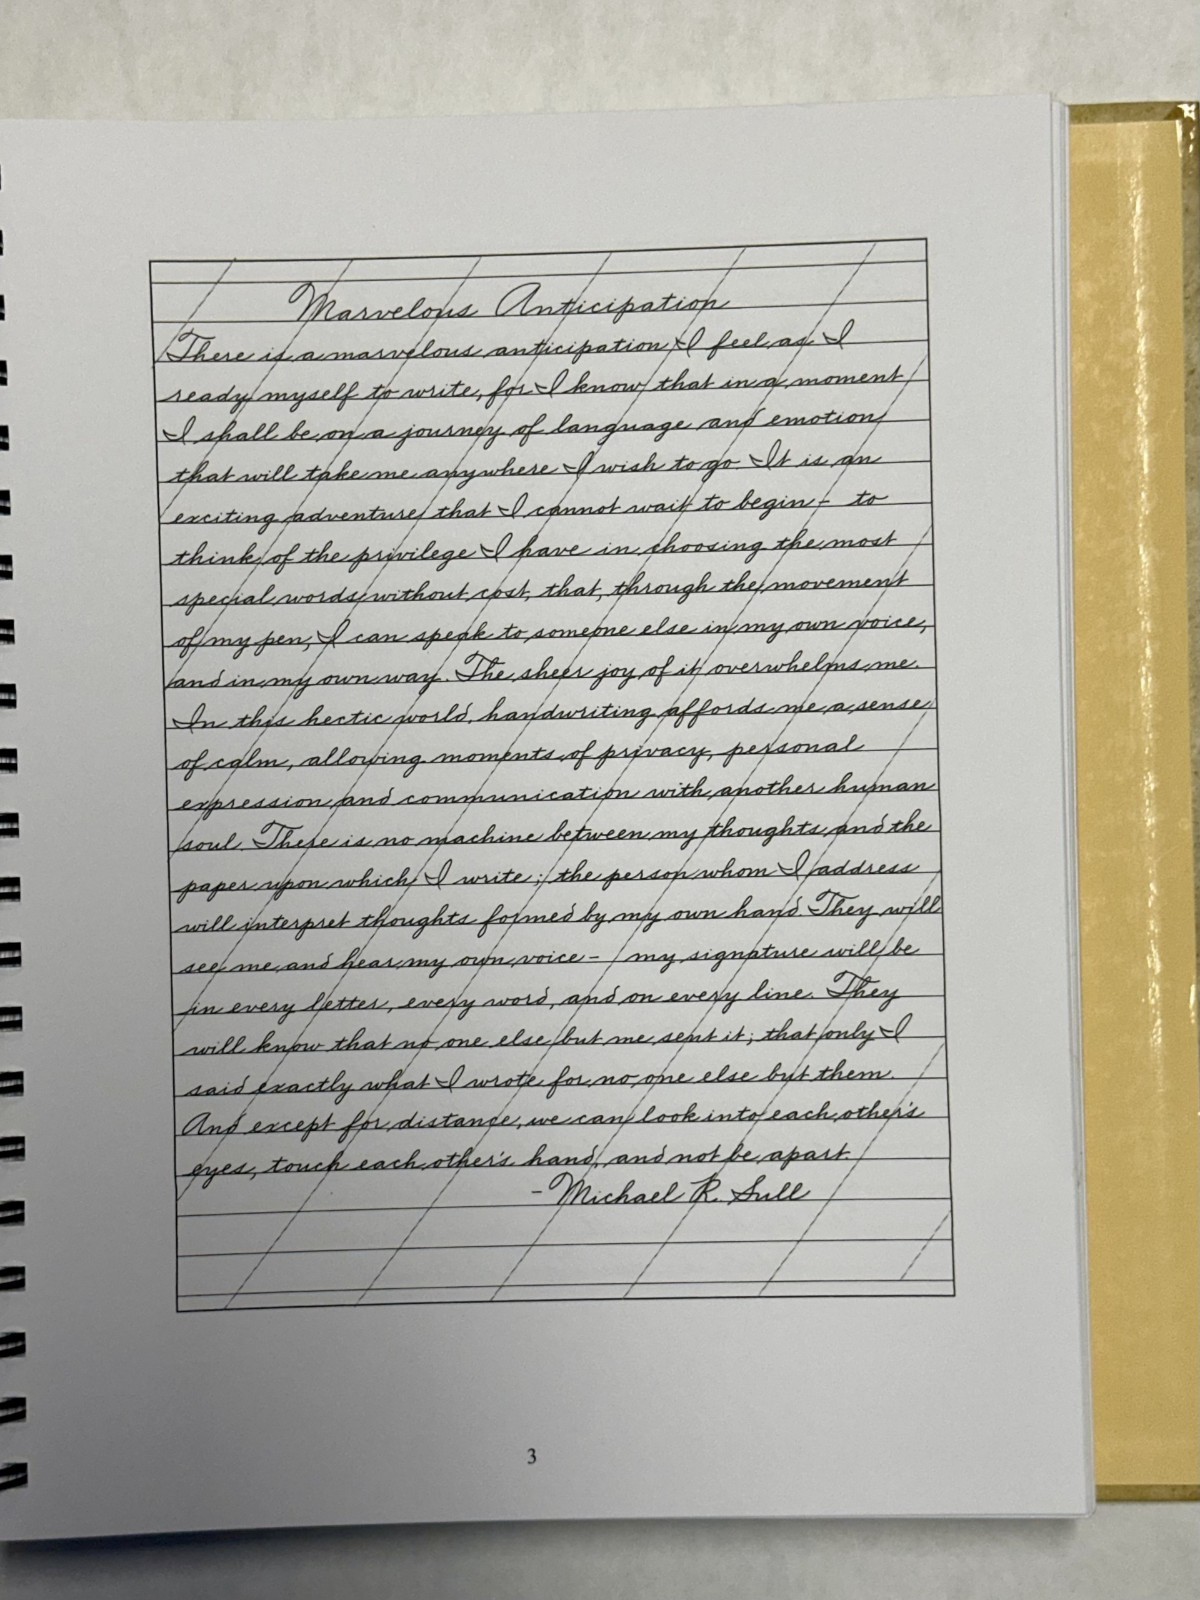 Marvelous Anticipation
There is a marvelous anticipation I feel as I
ready myself to write, for I know that in a moment
I shall be on a journey of language and emotion
that will take me anywhere I wish to go. It is an
exciting adventure that I cannot wait to begin - to
think of the privilege I have in choosing the most
special words without cost, that, through the movement
of my pen, I can speak to someone else in my own voice,
and in my own way. The sheer joy of it overwhelms me.
In this hectic world, handwriting affords me a sense
of calm, allowing moments of privacy, personal
expression and communication with another human
soul. There is no machine between my thoughts and the
paper upon which I write; the person whom I address
will interpret thoughts formed by my own hand. They will
see me and hear my own voice - my signature will be
in every letter, every word, and on every line. They
will know that no one else but me sent it; that only I
said exactly what I wrote for no one else but them.
And except for distance, we can look into each other's
eyes, touch each other's hand, and not be apart.
- Michael R. Sull
3